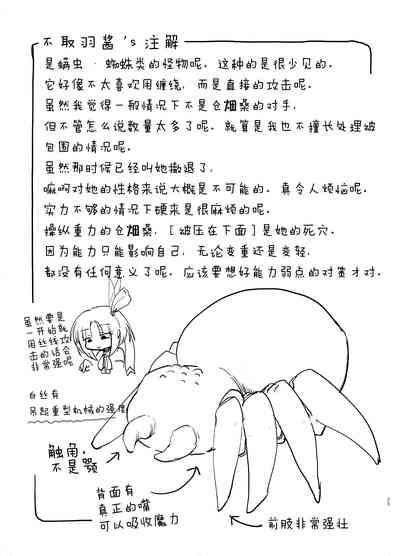 不取羽酱's注解
是螨虫·蜘蛛类的怪物呢，这种的是很少见的。
它好像不太喜欢用缠绕，而是直接的攻击呢。
虽然我觉得一般情况下不是仓畑桑的对手，
但不管怎么说数量太多了呢，就算是我也不擅长处理被
包围的情况呢。
虽然那时候已经叫她撤退了，
嘛啊对她的性格来说大概是不可能的，真令人烦恼呢。
实力不够的情况下硬来是很麻烦的呢。
操纵重力的仓畑桑，[被压在下面]是她的死穴。
因为能力只能影响自己，无论变重还是变轻，
都没有任何意义了呢，应该要想好能力弱点的对策才对。
虽然要是
一开始就
用丝线攻
击的话会
非常强呢
白丝有
吊起重型机械的强度
触角，
不是颚
背面有
真正的嘴
可以吸收魔力
前肢非常强壮